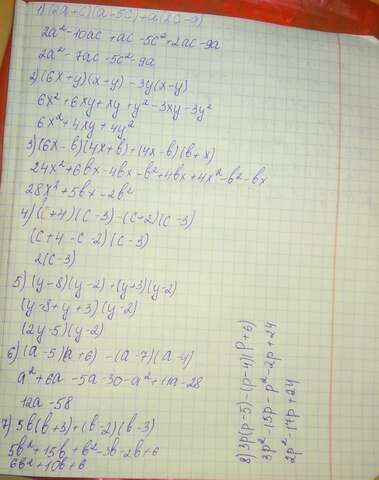 1) (2a+c)(a-5c)+a(2c-9)
2a²-10ac+ac-5c²+2ac-9a
2a²-7ac-5c²-9a
2) (6x+y)(x+y)-3y(x-y)
6x²+6xy+xy+y²-3xy-3y²
6x²+4xy+4y²
3) (6x-b)(4x+b)+(4x-b)(b+x)
24x²+6bx-4bx-b²+4bx+4x²-b²-bx
28x²+5bx-2b²
4) (c+4)(c-3)-(c+2)(c-3)
(c+4-c-2)(c-3)
2(c-3)
5) (y-8)(y-2)+(y+3)(y-2)
(y-8+y+3)(y-2)
(2y-5)(y-2)
6) (a-5)(a+6)-(a-7)(a-4)
a²+6a-5a-30-a²+11a-28
12a-58
7) 5b(b+3)+(b-2)(b-3)
5b²+15b+b²-3b-2b+6
6b²+10b+6
8) 3p(p-5)-(p-4)(p+6)
3p²-15p-p²-2p+24
2p²-17p+24